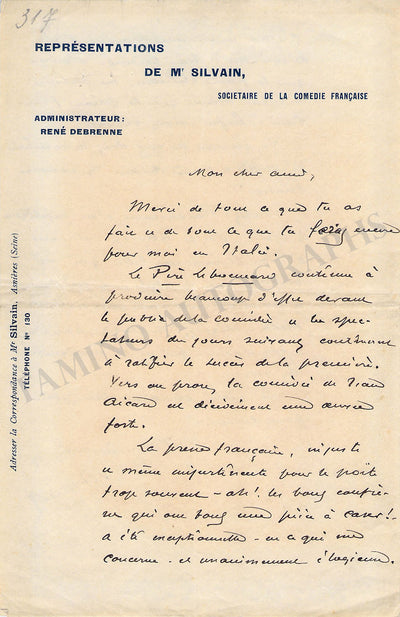 317
REPRÉSENTATIONS
DE Mr SILVAIN,
SOCIETAIRE DE LA COMEDIE FRANÇAISE
ADMINISTRATEUR:
RENÉ DEBRENNE
Adresser la Correspondance à Mr Silvain, Asnières (Seine)
TÉLÉPHONE N° 130
Mon cher ami,
Merci de tout ce que tu as
fait et de tout ce que tu feras encore
pour moi en Italie.
Le Père Lebonnard continue à
produire beaucoup d'effet devant
le public de la comédie et les spec-
tateurs des jours suivants continuent
à ratifier le succès de la première.
Vers ou prose, la comédie de Jean
Aicard est décidément une œuvre
forte.
La presse française, injuste
et même impertinente pour le poëte
trop souvent - ah! les bons confrè-
res qui ont tous une pièce à caser! -
a été exceptionnelle - en ce qui me
concerne - et unanimement élogieuse.
TAMINO AUTOGRAPHS